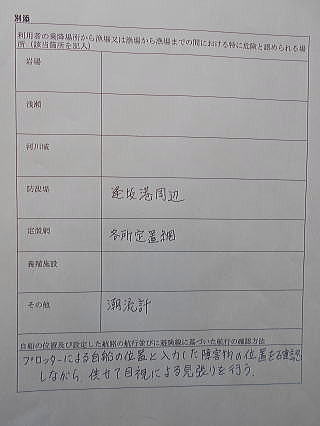 別添
利用者の乗降場所から漁場又は漁場から漁場までの間における特に危険と認められる場
所（該当箇所を記入）
岩場
浅瀬
河川域
防波堤 逢坂港周辺
定置網 各所定置網
養殖施設
その他 潮流計
自船の位置及び設定した航路の航行並びに避険線に基づいた航行の確認方法
プロッターによる自船の位置と入力した障害物の位置を確認
しながら、併せて目視による見張りを行う。